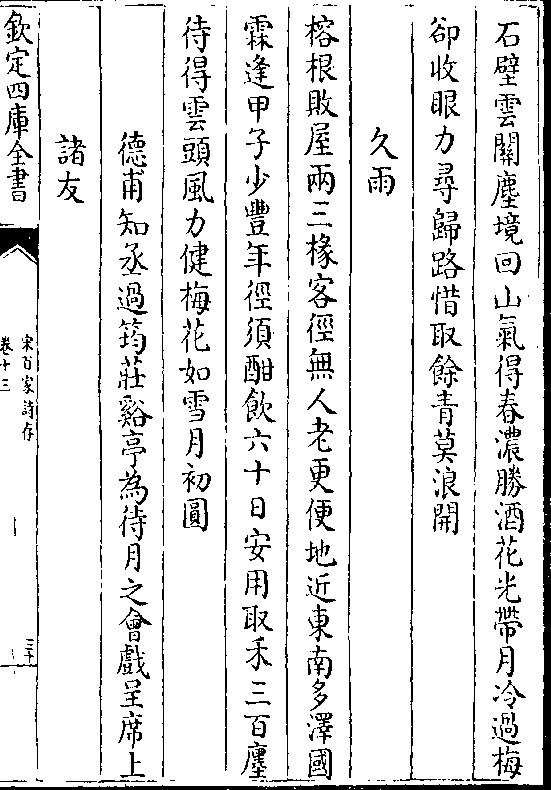 石壁雲關塵境回山氣得春濃勝酒花光帶月冷過梅
卻收眼力尋歸路惜取餘青莫浪開
久雨
榕根敗屋兩三椽客徑無人老更便地近東南多澤國
霖逢甲子少豐年徑須酣飲六十日安用取禾三百廛
待得雲頭風力健梅花如雪月初圓
德甫知丞過筠莊谿亭為待月之會戲呈席上
諸友
欽定四庫全書
宋百家詩存
卷十三
三十